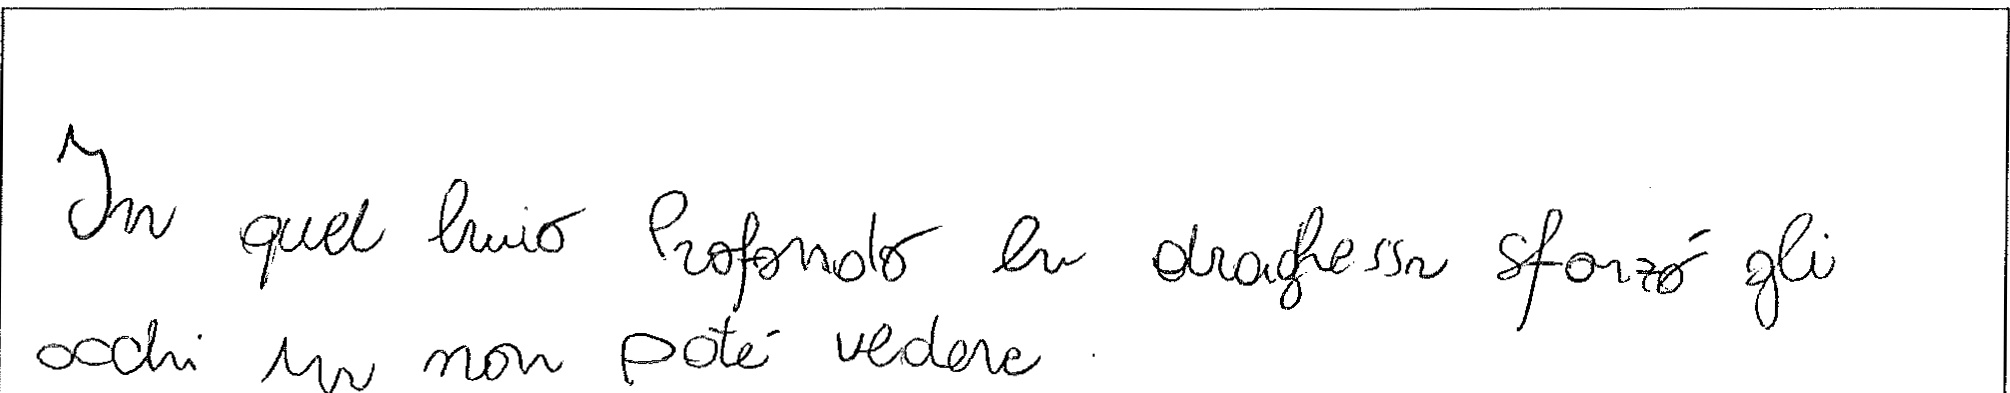 In quel buio Profondo la draghessa sforzó gli
occhi ma non poté vedere.